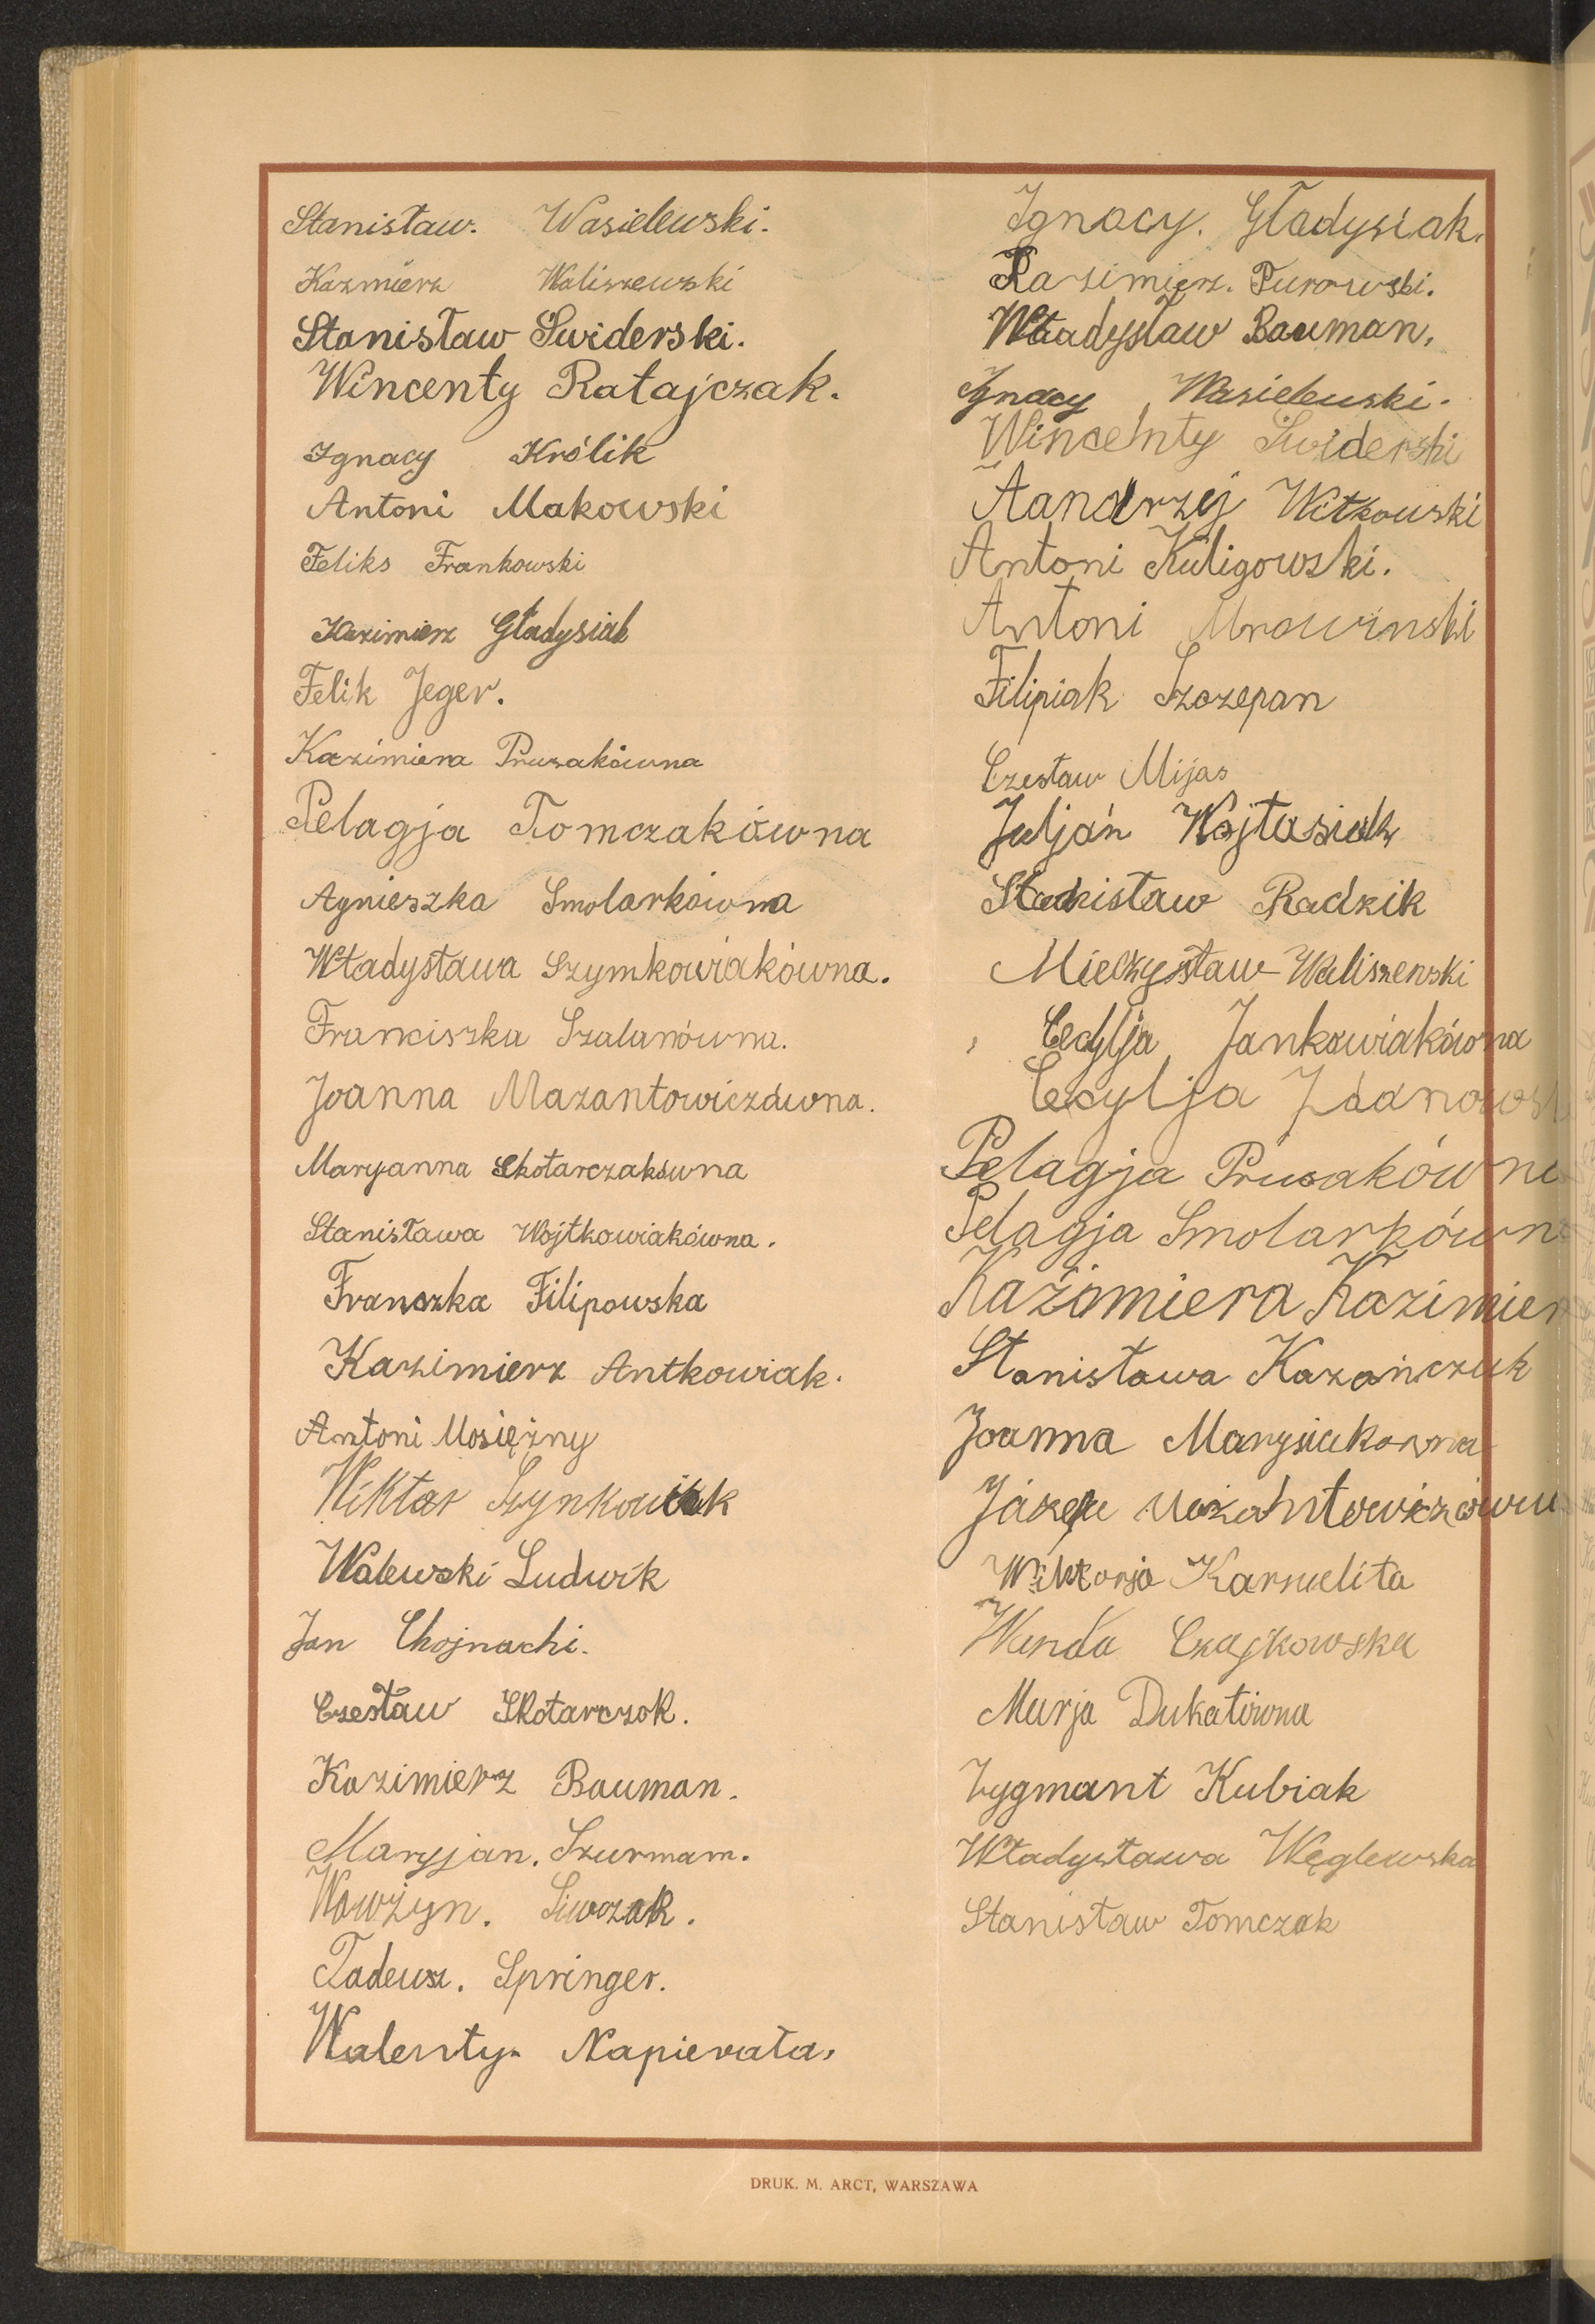 Stanisław. Wasielewski.
Kazmierz Waliszewski
Stanisław Świderski.
Wincenty Ratajczak.
Ignacy Królik
Antoni Makowski
Feliks Frankowski
Kazimierz Gładysiak
Felik Jeger.
Kazimiera Prusakówna
Pelagja Tomczakówna
Agnieszka Smolarkówna
Władysława Szymkowiakówna.
Franciszka Szalanówna.
Joanna Mazantowiczówna.
Maryanna Skotarczakówna
Stanisława Wojtkowiakówna.
Franszka Filipowska
Kazimierz Antkowiak.
Antoni Mosiężny
Wiktor Szynkowiak
Walewski Ludwik
Jan Chojnacki.
Czesław Skotarczok.
Kazimierz Bauman.
Maryjan. Szurmam.
Wawżyn. Siwczak.
Tadeusz. Springer.
Walenty. Napierała.
Ignacy. Gładysiak.
Kazimierz. Purowski.
Władysław Bauman.
Ignacy Wasielewski.
Wincenty Świderski
Aandrzej Witkowski
Antoni Kuligowski.
Antoni Mrowinski
Filipiak Szczepan
Czesław Mijas
Julján Wojtasiak
Stanisław Radzik
Mieczysław Waliszewski
Cecylja Jankowiakówna
Cecylja Zdanows
Pelagja Prusakówn
Pelagja Smolarkówn
Kazimiera Kazimier
Stanisława Kazańczuk
Joanna Marysiakowna
Wiktorja Karmelita
Wanda Czajkowska
Marja Dukatówna
Zygmunt Kubiak
Władysława Węglewska
Stanisław Tomczak
DRUK. M. ARCT, WARSZAWA